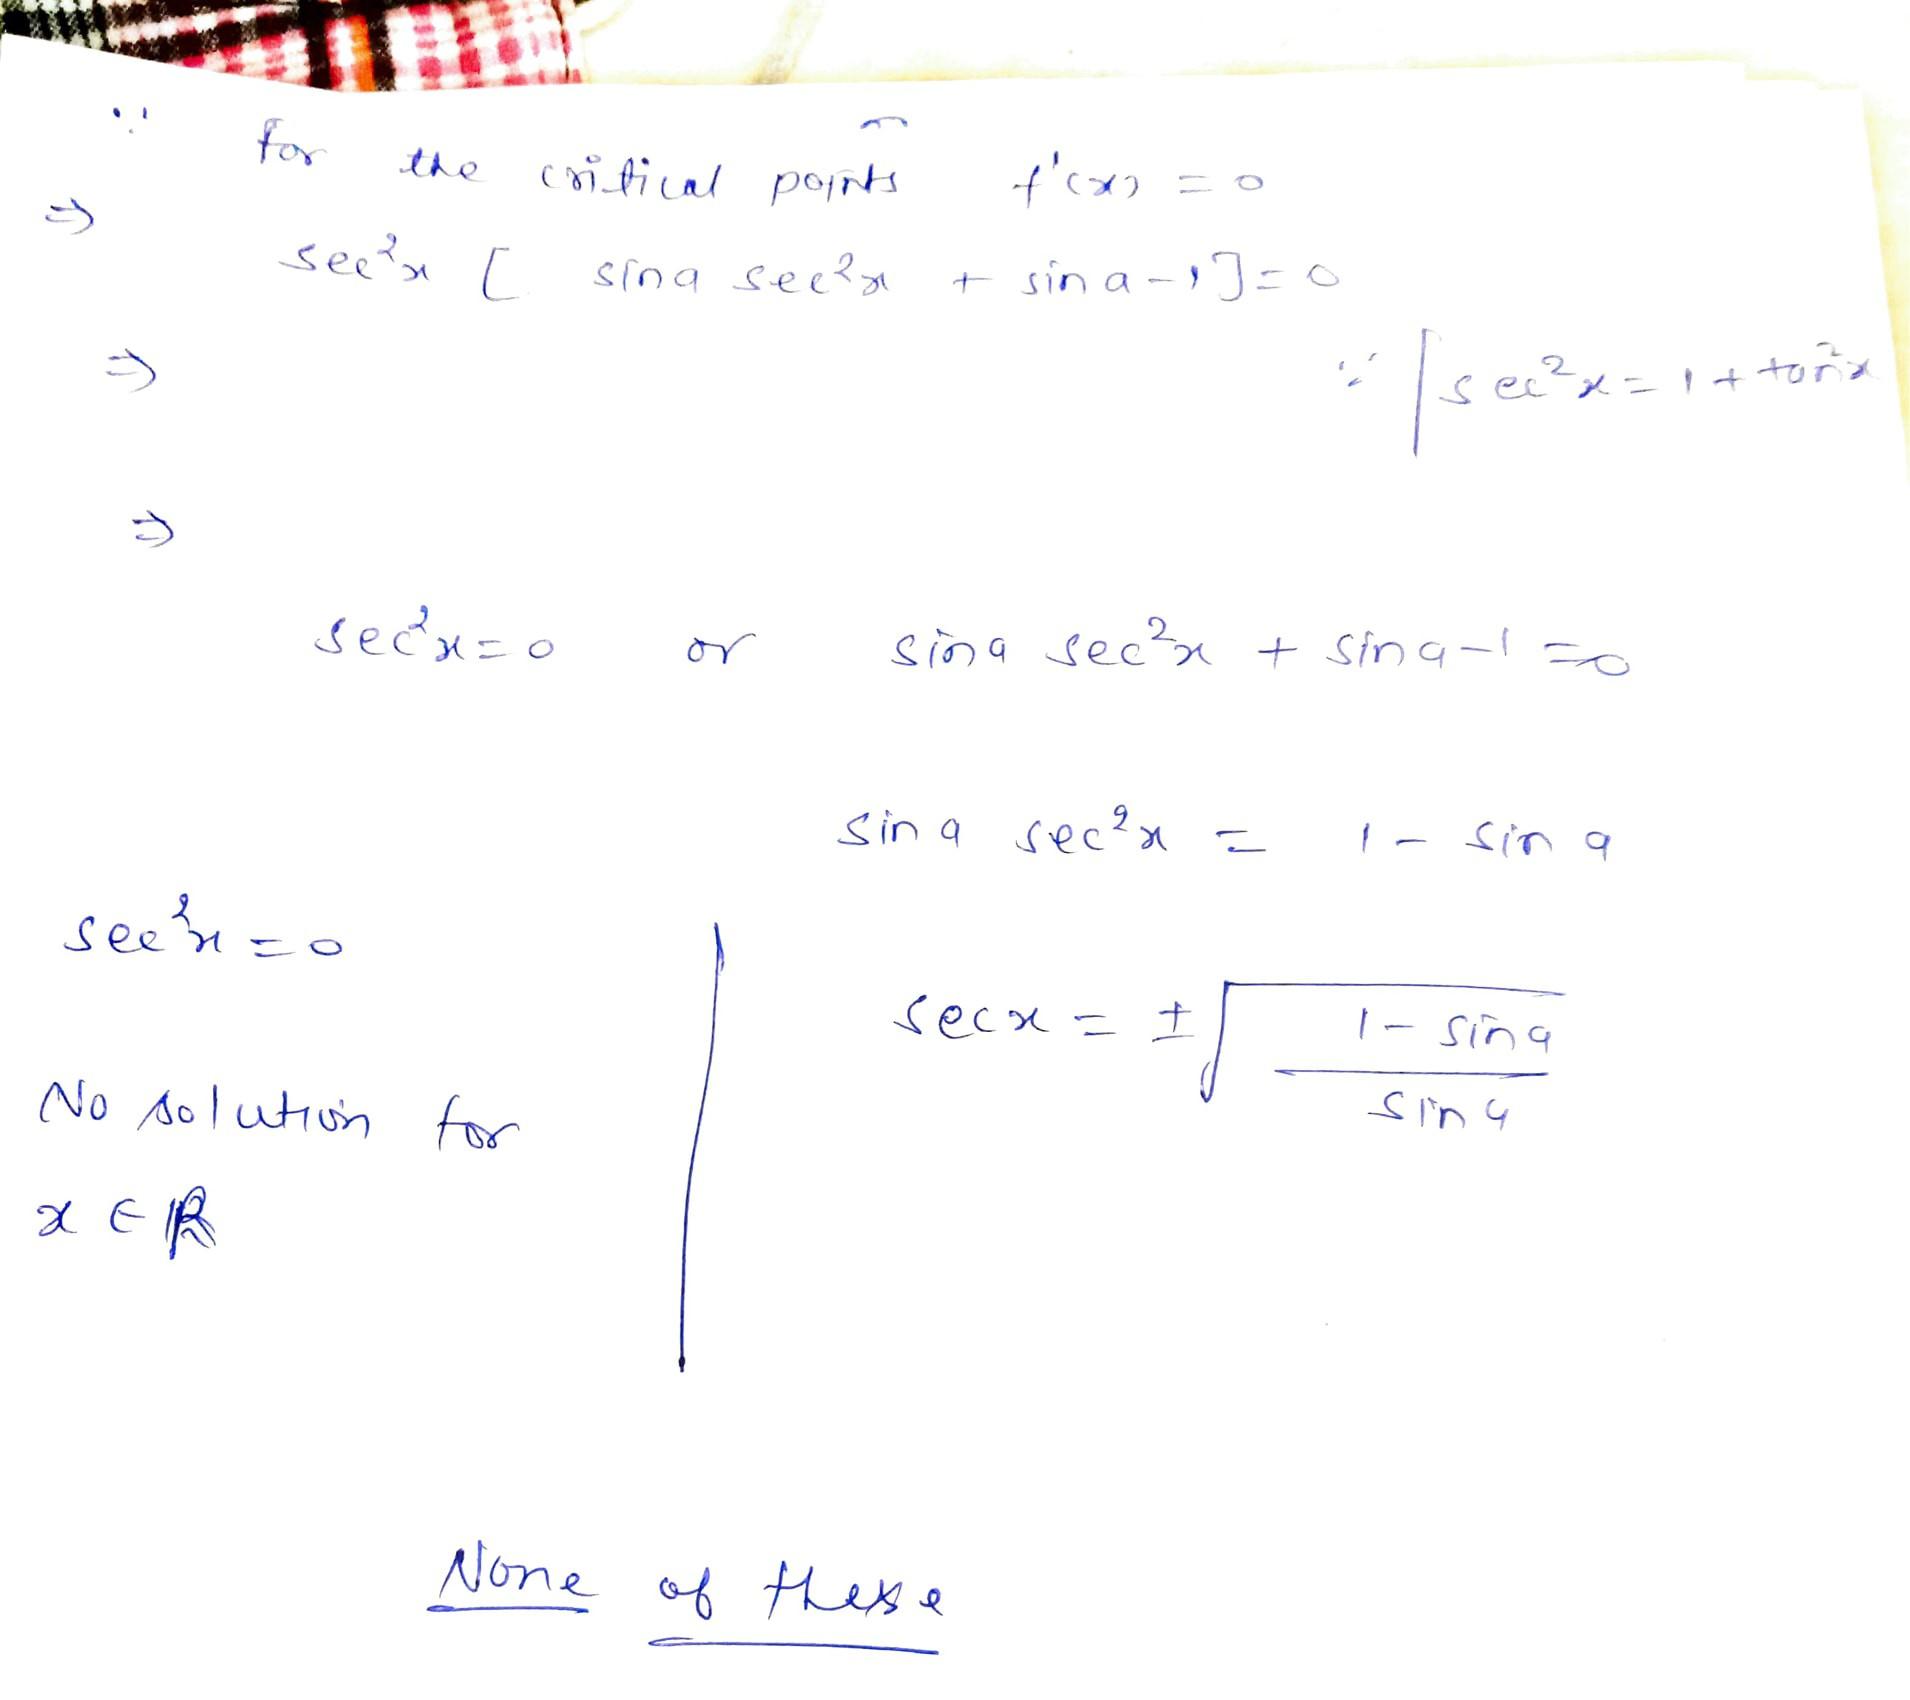 ∵ for the critical points f'(x) = 0
⇒ sec²x [ sin a sec²x + sin a - 1 ] = 0
⇒ ∵ | sec²x = 1 + tan²x
⇒
sec²x = 0 or sin a sec²x + sin a - 1 = 0
sin a sec²x = 1 - sin a
sec²x = 0
sec x = ± √(1 - sin a / sin a)
No solution for
x ∈ ℝ
None of these